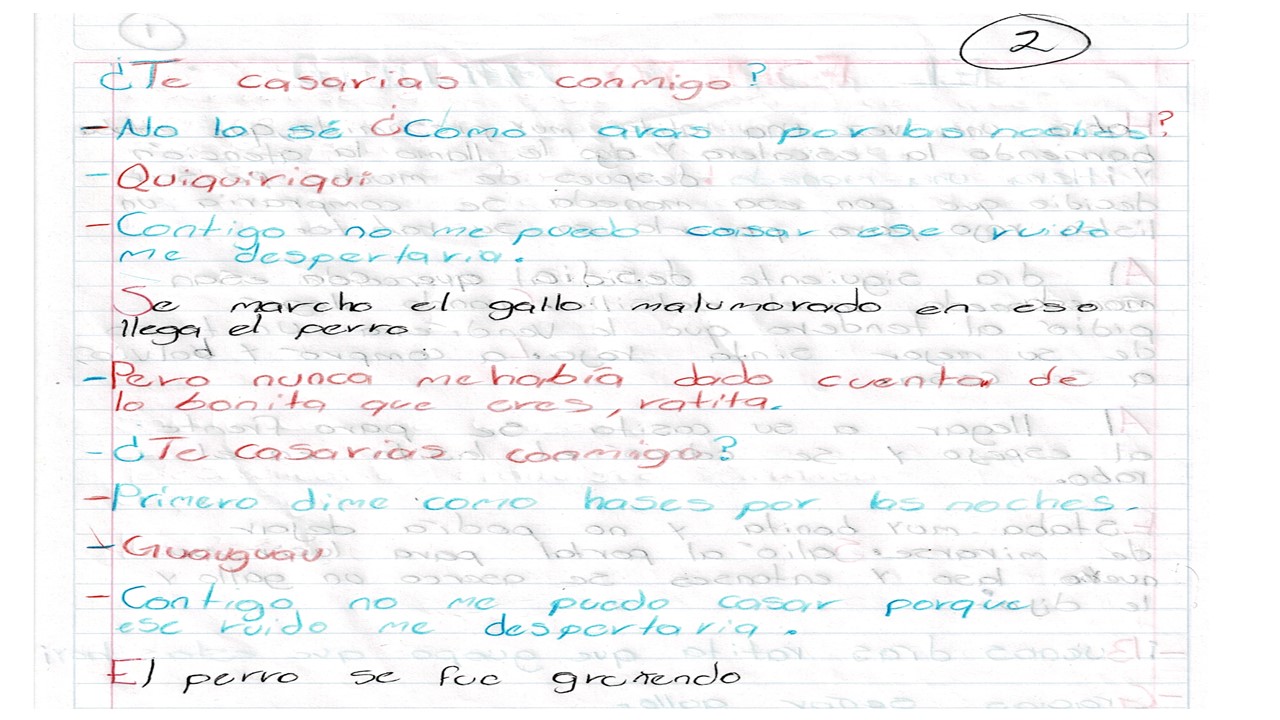 2
¿Te casarias conmigo?
- No lo sé ¿Como aras por las noches?
- Quiquiriqui
- Contigo no me puedo casar ese ruido
me despertaria.
Se marcho el gallo malumorado en eso
llega el perro
- Pero nunca me había dado cuenta de
lo bonita que eres, ratita.
- ¿Te casarias conmigo?
- Primero dime como hases por las noches.
- Guauguau
- Contigo no me puedo casar porque
ese ruido me despertaria.
El perro se fue